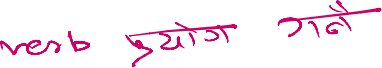 verb प्रयोग गर्ने